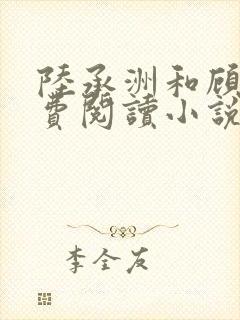 陸承洲和顧
費閱讀小說
李全友